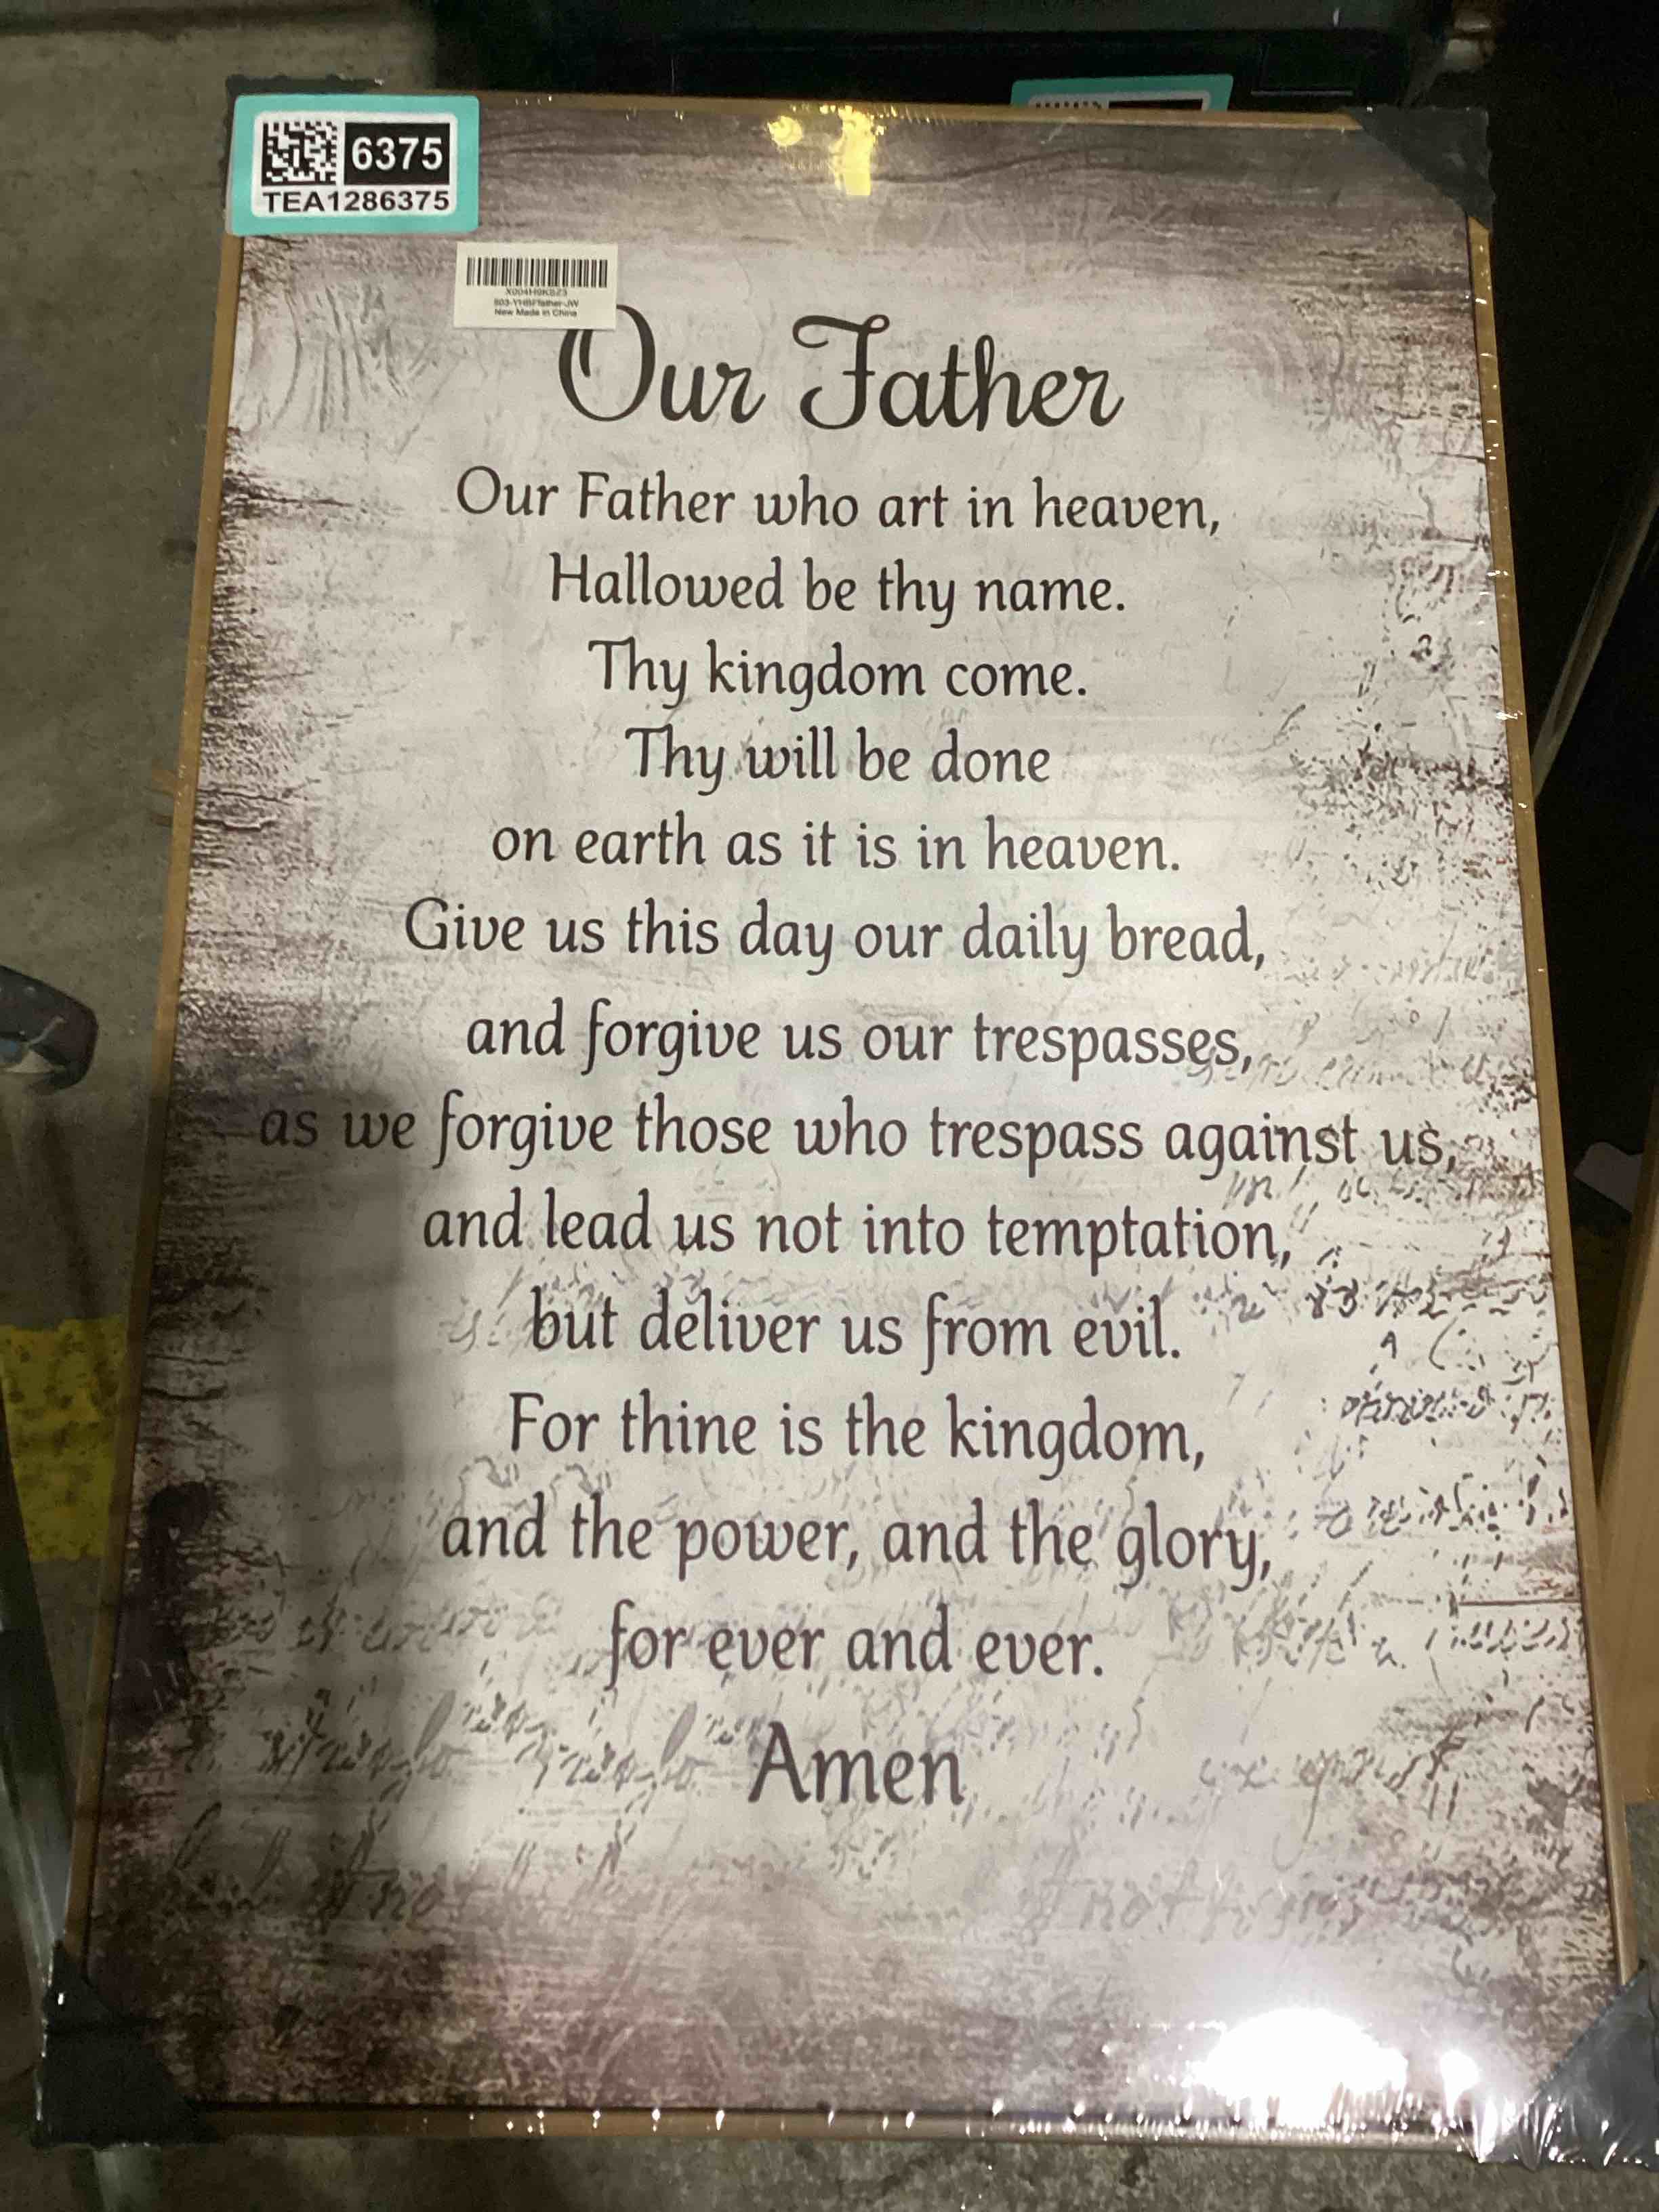 6375
TEA1286375
New Made in China
Our Father
Our Father who art in heaven,
Hallowed be thy name.
Thy kingdom come.
Thy will be done
on earth as it is in heaven.
Give us this day our daily bread,
and forgive us our trespasses,
as we forgive those who trespass against us,
and lead us not into temptation,
but deliver us from evil.
For thine is the kingdom,
and the power, and the glory,
for ever and ever.
Amen